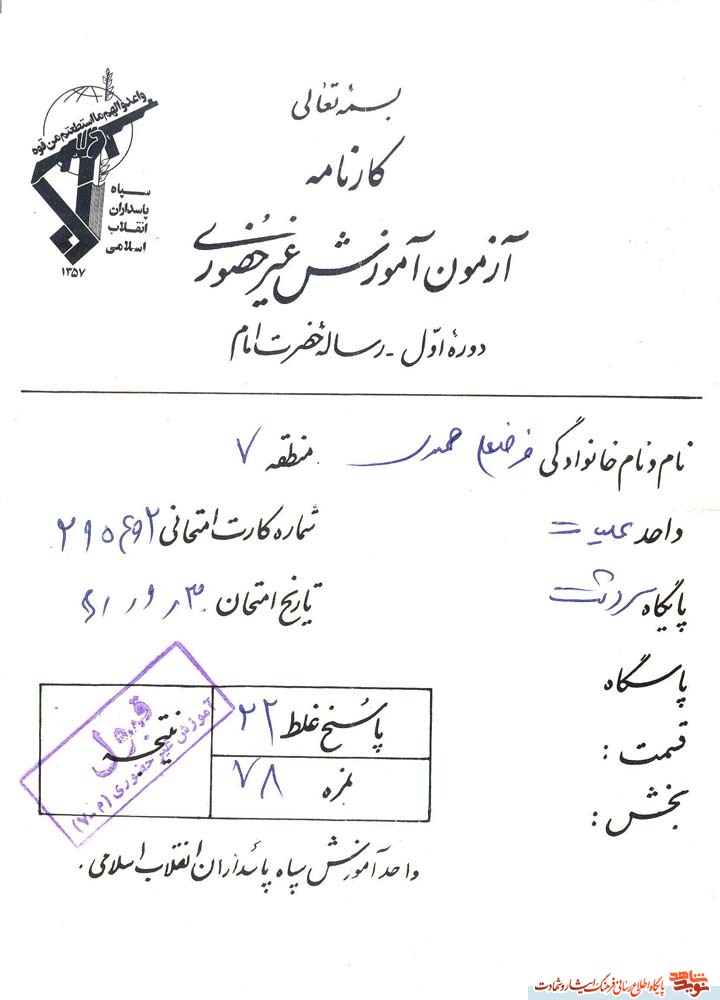 واعدوا لهم ما استطعتم من قوه
سپاه
پاسداران
انقلاب
اسلامی
۱۳۵۷
بسمه تعالی
کارنامه
آزمون آموزش غیر حضوری
دورهٔ اوّل - رسالهٔ حضرت امام
نام و نام خانوادگی منطقه ۷
واحد عملیات شماره کارت امتحانی
پایگاه سردشت تاریخ امتحان
پاسگاه
قسمت :
بخش :
پاسخ غلط ۲۲
نمره ۷۸
نتیجه
قبول
آموزش غیر حضوری (م-۷)
واحد آموزش سپاه پاسداران انقلاب اسلامی .
نوید شاهد
پایگاه اطلاع رسانی فرهنگ ایثار و شهادت